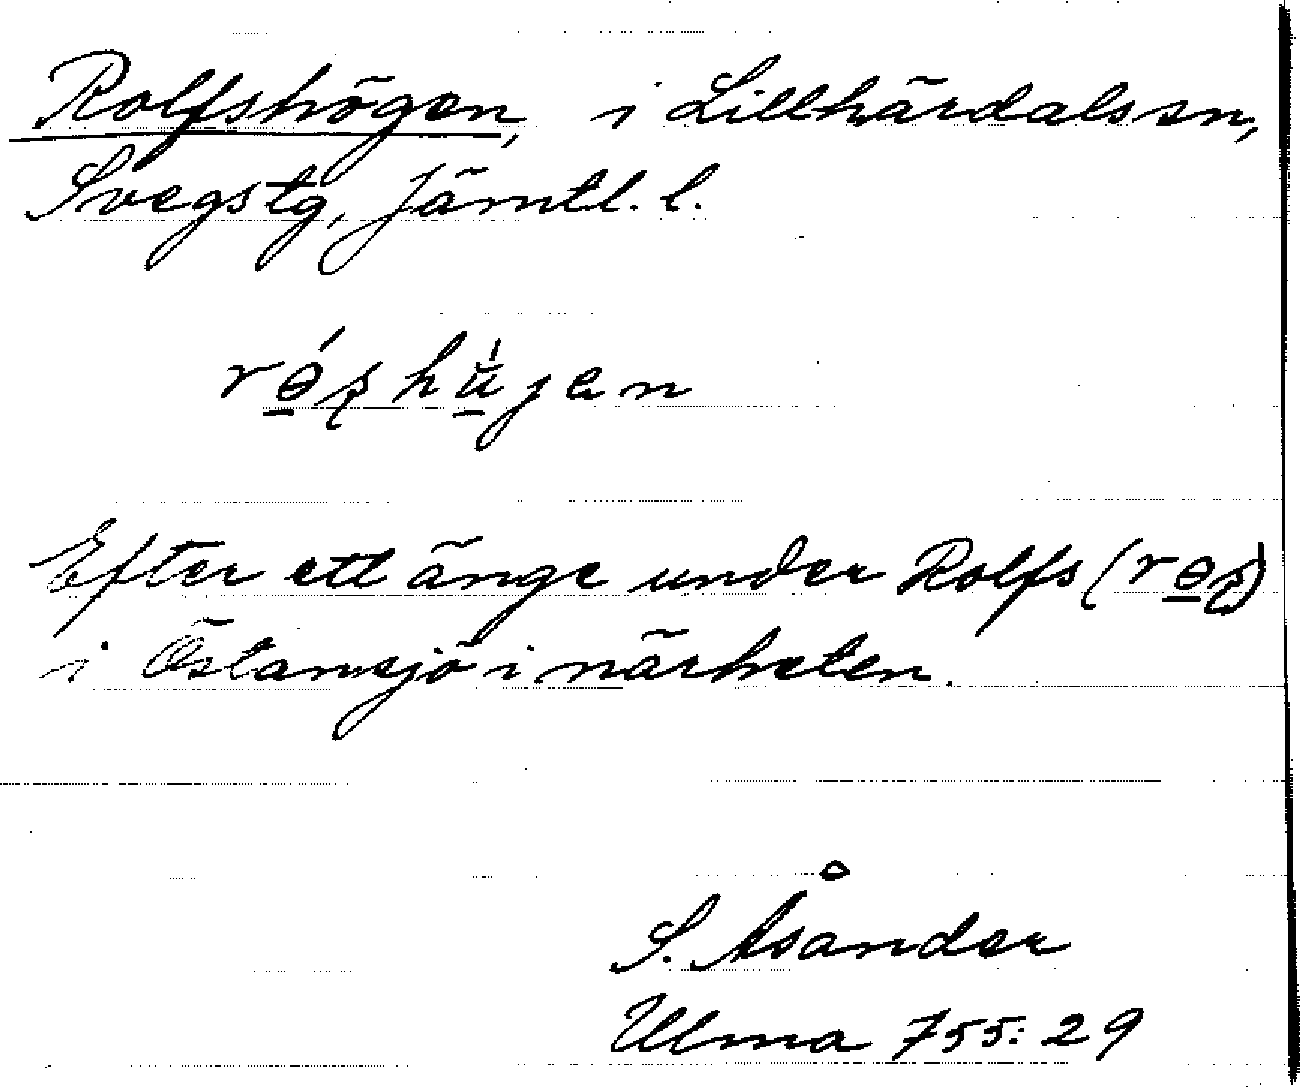 Rolfshögen, i Lillhärdals sn,
Svegs tg, Jämtl. l.
Efter ett änge under Rolfs
i Östansjö i närheten.
S. Åsander
Ulma 755:29